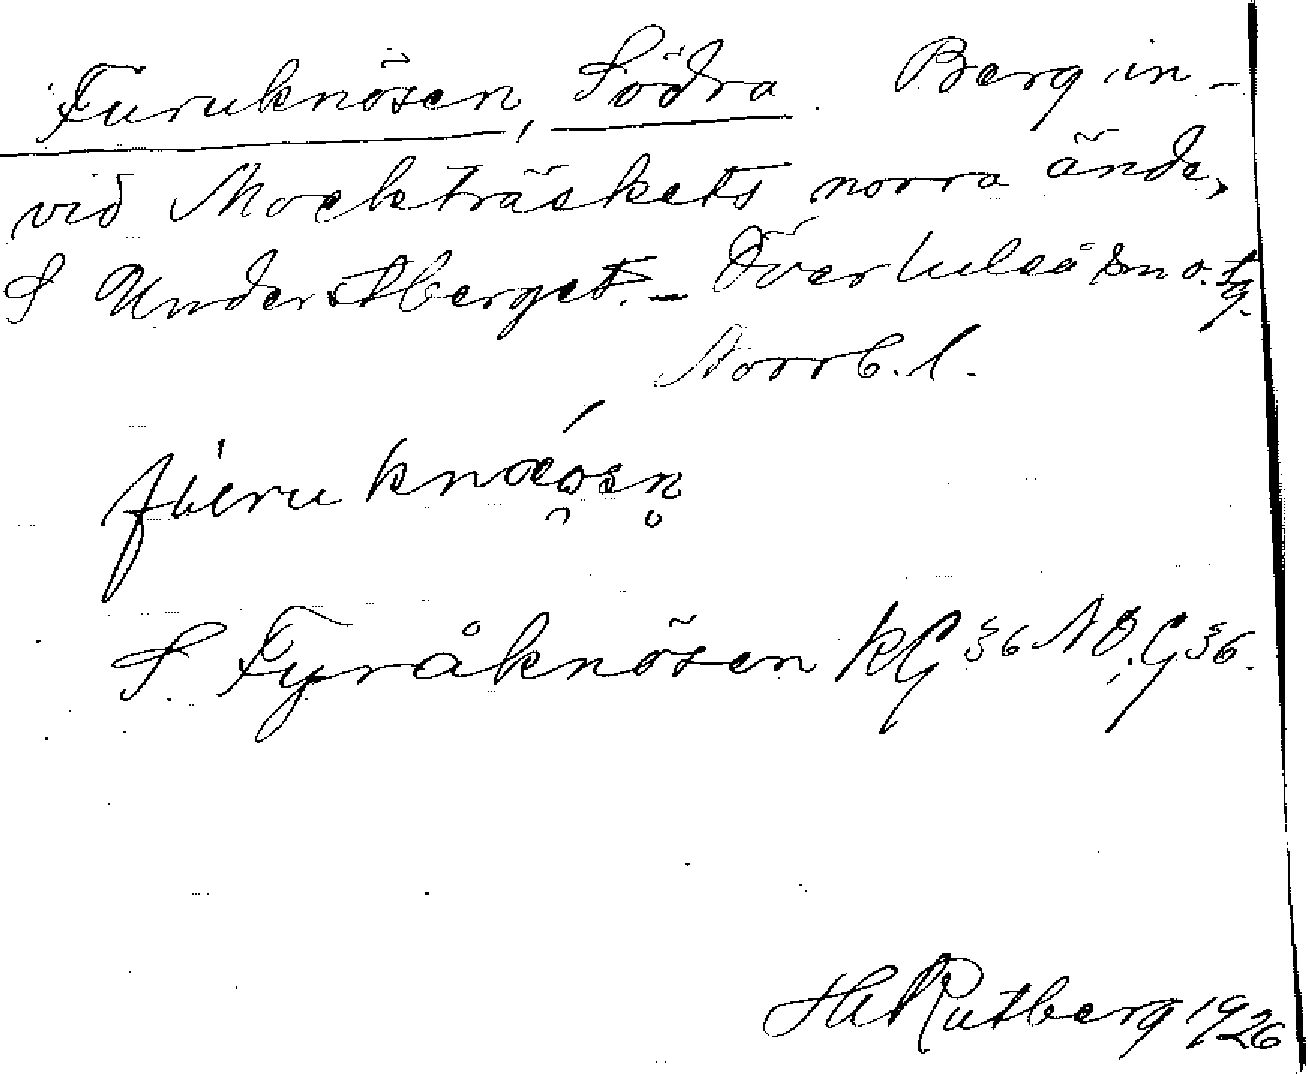 Furuknösen, Södra. Berg in-
vid Mockträskets norra ände,
S Understberget. - Överluleå sn o. tg.
Norrb. l.
furu knöosen
S. Fyråknösen KG §6 NÖ.G §6.
H Rutberg 1926